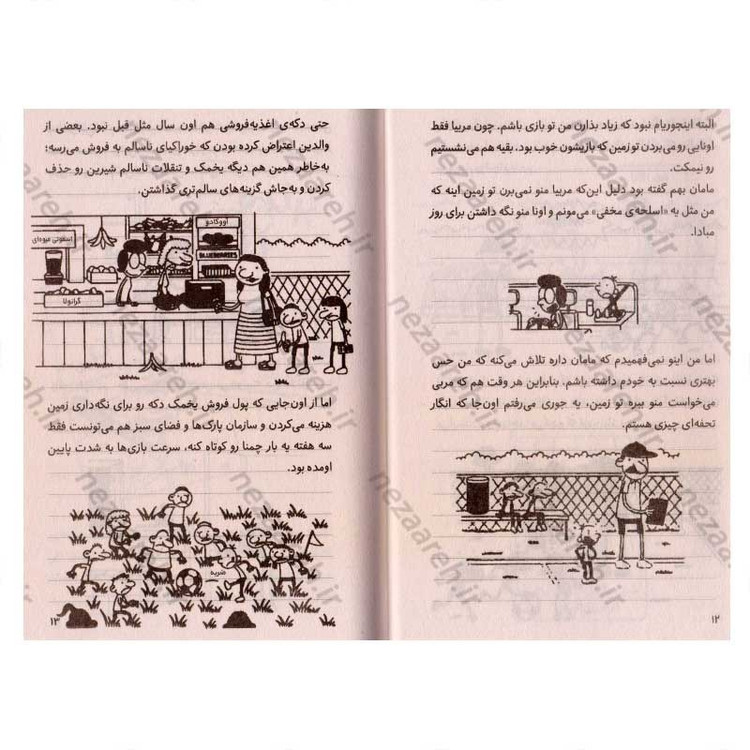 البته اینجوریام نبود که زیاد بذارن من تو بازی باشم. چون مربیا فقط
اونایی رو می‌بردن تو زمین که بازیشون خوب بود. بقیه هم می‌نشستیم
رو نیمکت.
مامان بهم گفته بود دلیل این‌که مربیا منو نمی‌برن تو زمین اینه که
من مثل یه «اسلحه‌ی مخفی» می‌مونم و اونا منو نگه داشتن برای روز
مبادا.
اما من اینو نمی‌فهمیدم که مامان داره تلاش می‌کنه که من حس
بهتری نسبت به خودم داشته باشم. بنابراین هر وقت هم که مربی
می‌خواست منو ببره تو زمین، یه جوری می‌رفتم اون‌جا که انگار
تحفه‌ای چیزی هستم.
۱۲
حتی دکه‌ی اغذیه‌فروشی هم اون سال مثل قبل نبود. بعضی از
والدین اعتراض کرده بودن که خوراکیای ناسالم به فروش می‌رسه؛
به‌خاطر همین هم دیگه یخمک و تنقلات ناسالم شیرین رو حذف
کردن و به‌جاش گزینه‌های سالم‌تری گذاشتن.
آووکادو
اسموتی میوه‌ای
BLUEBERRIES
گرانولا
اما از اون‌جایی که پول فروش یخمک دکه رو برای نگه‌داری زمین
هزینه می‌کردن و سازمان پارک‌ها و فضای سبز هم می‌تونست فقط
سه هفته یه بار چمنا رو کوتاه کنه، سرعت بازی‌ها به شدت پایین
اومده بود.
ضربه
۱۳
nezaareh.ir